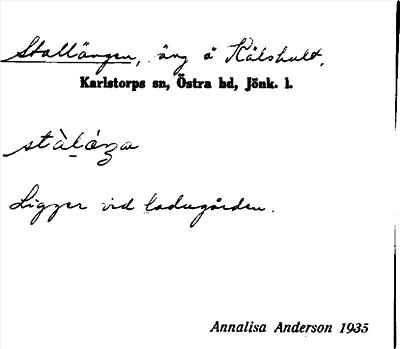 Stallängen, äng å Kålshult,
Karlstorps sn, Östra hd, Jönk. l.
Ligger vid ladugården.
Annalisa Anderson 1935